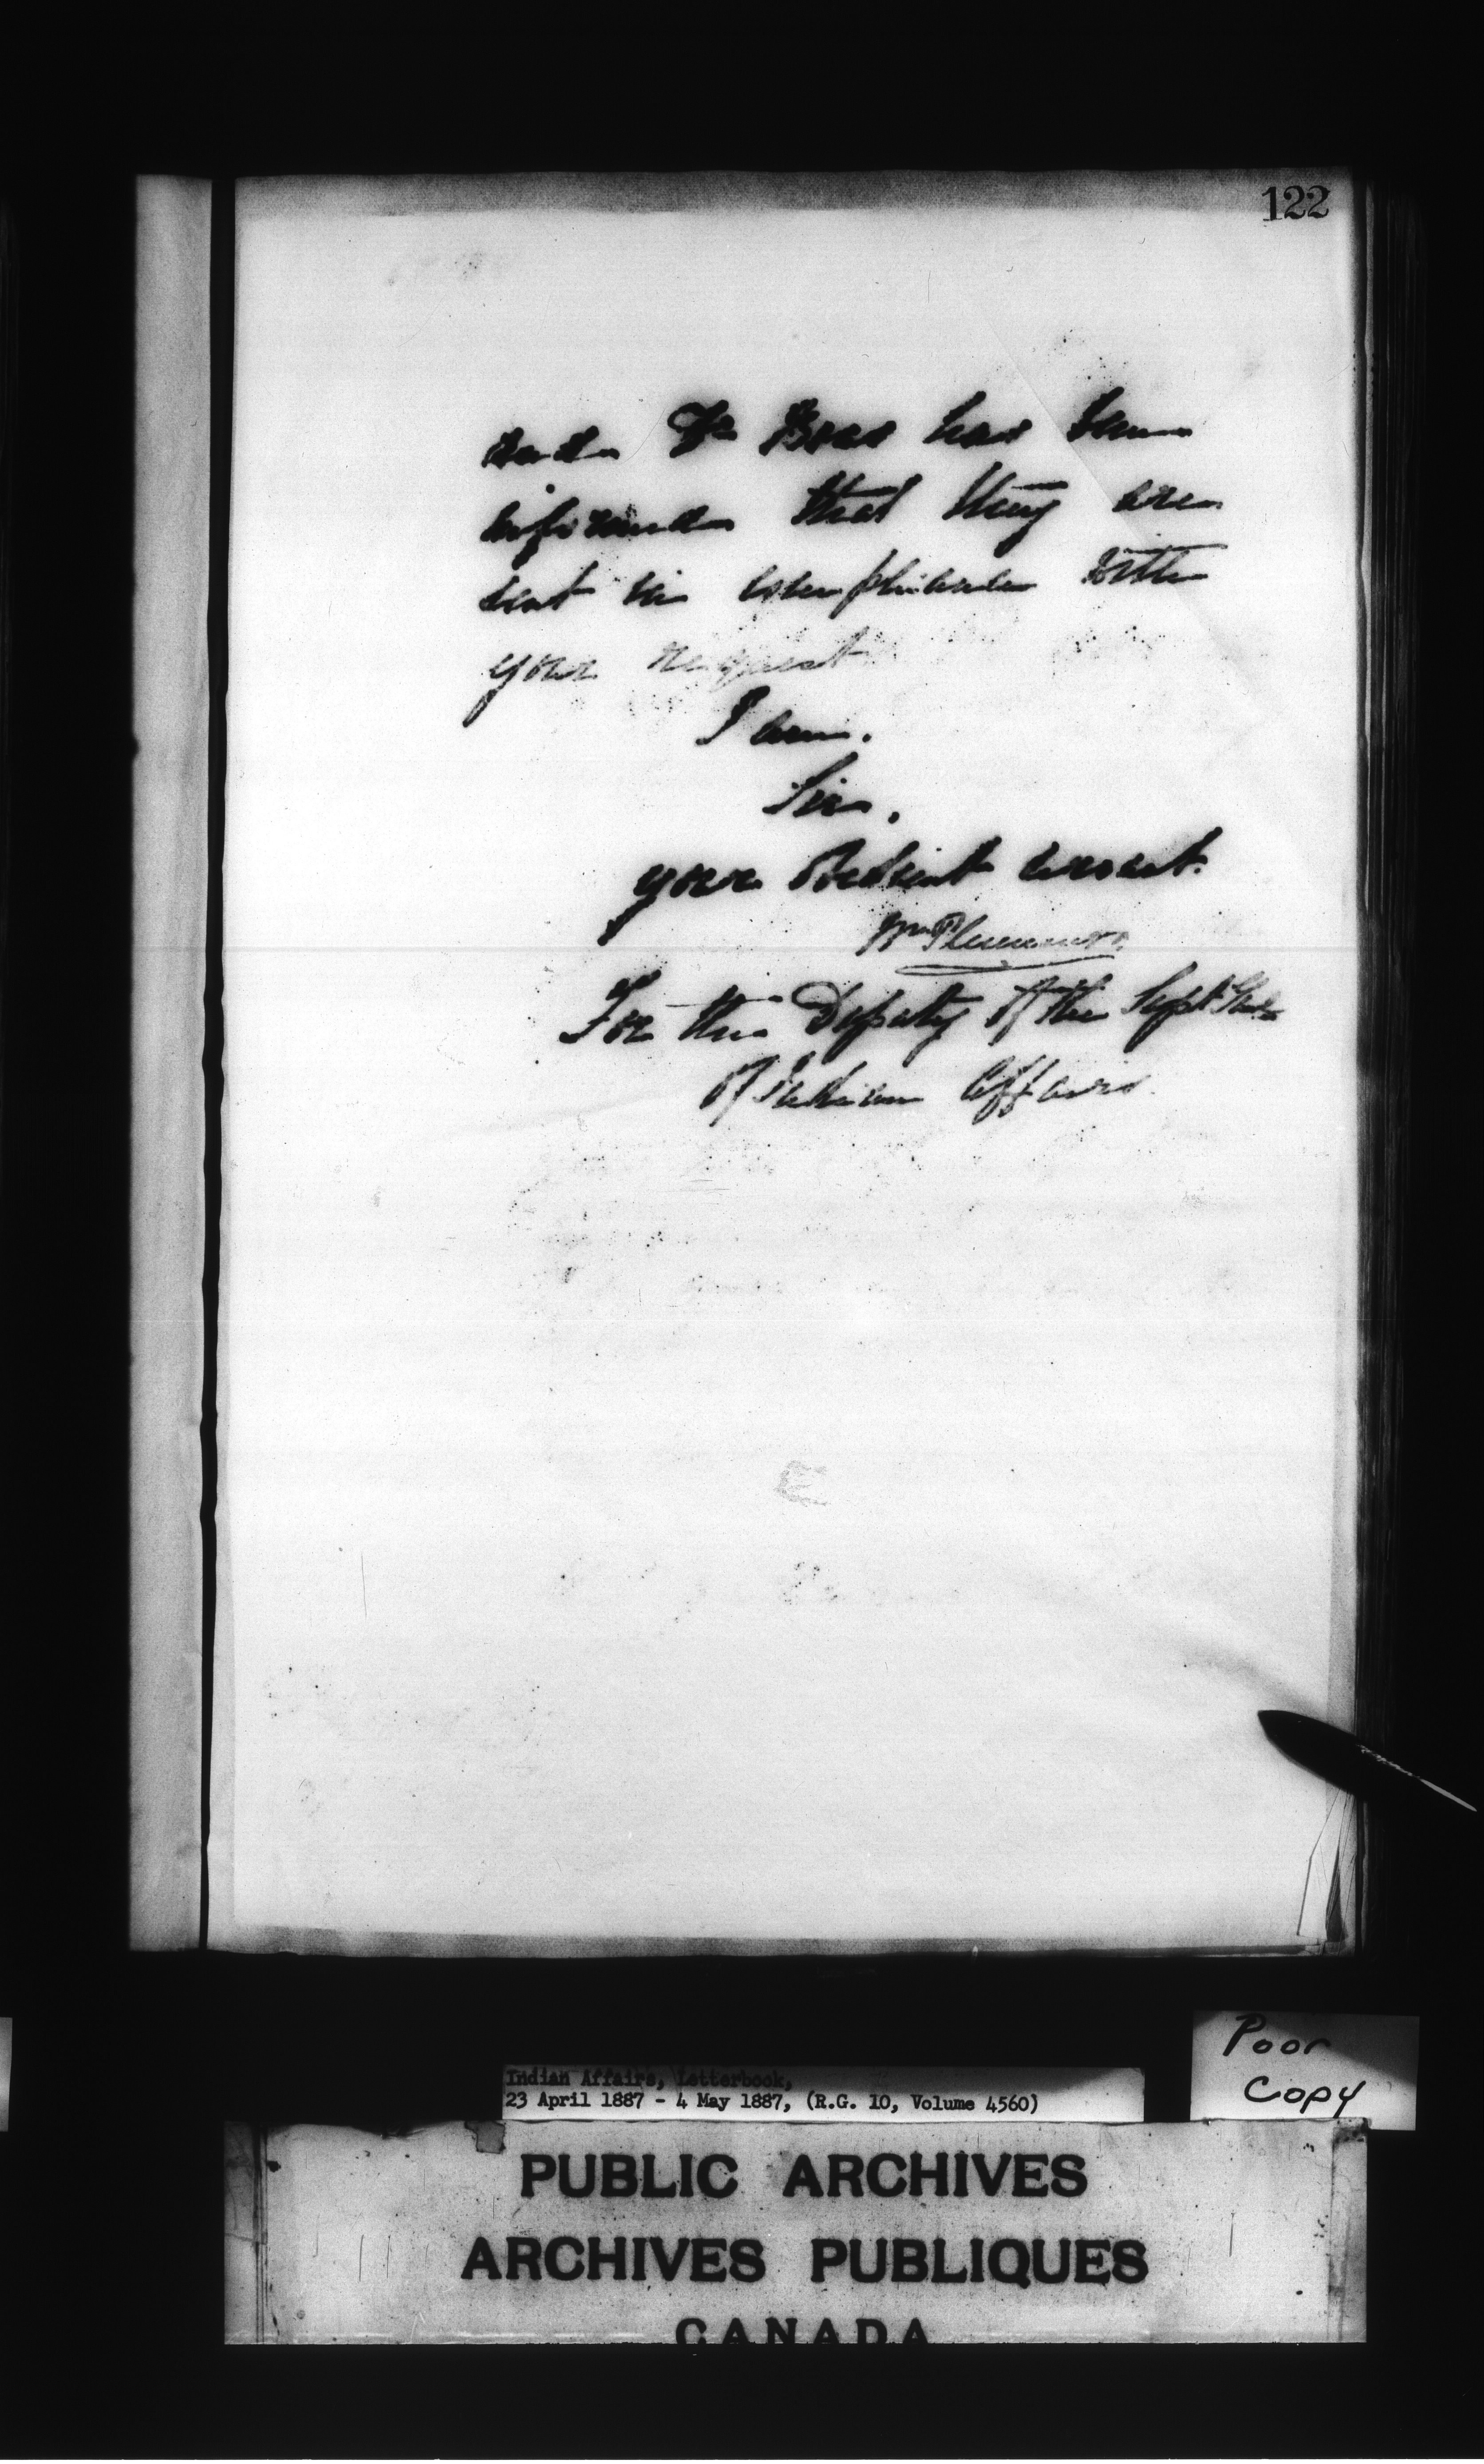 122
and Dr Boas has been
informed that they are
sent in compliance with
your request
I am.
Sir,
your Obedient servant.
Wm Plummer
For the Deputy of the Supt Genl
of Indian Affairs
Poor
Copy
Indian Affairs, Letterbook,
23 April 1887 - 4 May 1887, (R.G. 10, Volume 4560)
PUBLIC ARCHIVES
ARCHIVES PUBLIQUES
CANADA